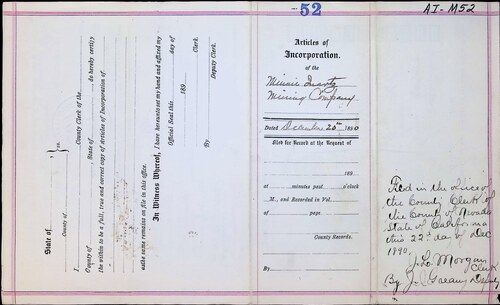 52
AI-M52
State of
ss.
County of
I County Clerk of the
County of , State of , do hereby certify
the within to be a full, true and correct copy of Articles of Incorporation of
as the same remains on file in this office.
In Witness Whereof, I have hereunto set my hand and affixed my
Official Seal this day of
189
Clerk.
By Deputy Clerk.
Articles of
Incorporation.
of the
Minnie Quartz
Mining Company
Dated December 20th 1890
Filed for Record at the Request of
189
at minutes past o'clock
M., and Recorded in Vol.
of page
County Records.
By
Filed in the office of
the County Clerk of
the County of Nevada
State of California
this 22d day of Dec
1890.
J. L. Morgan
Clerk
By J. Deputy